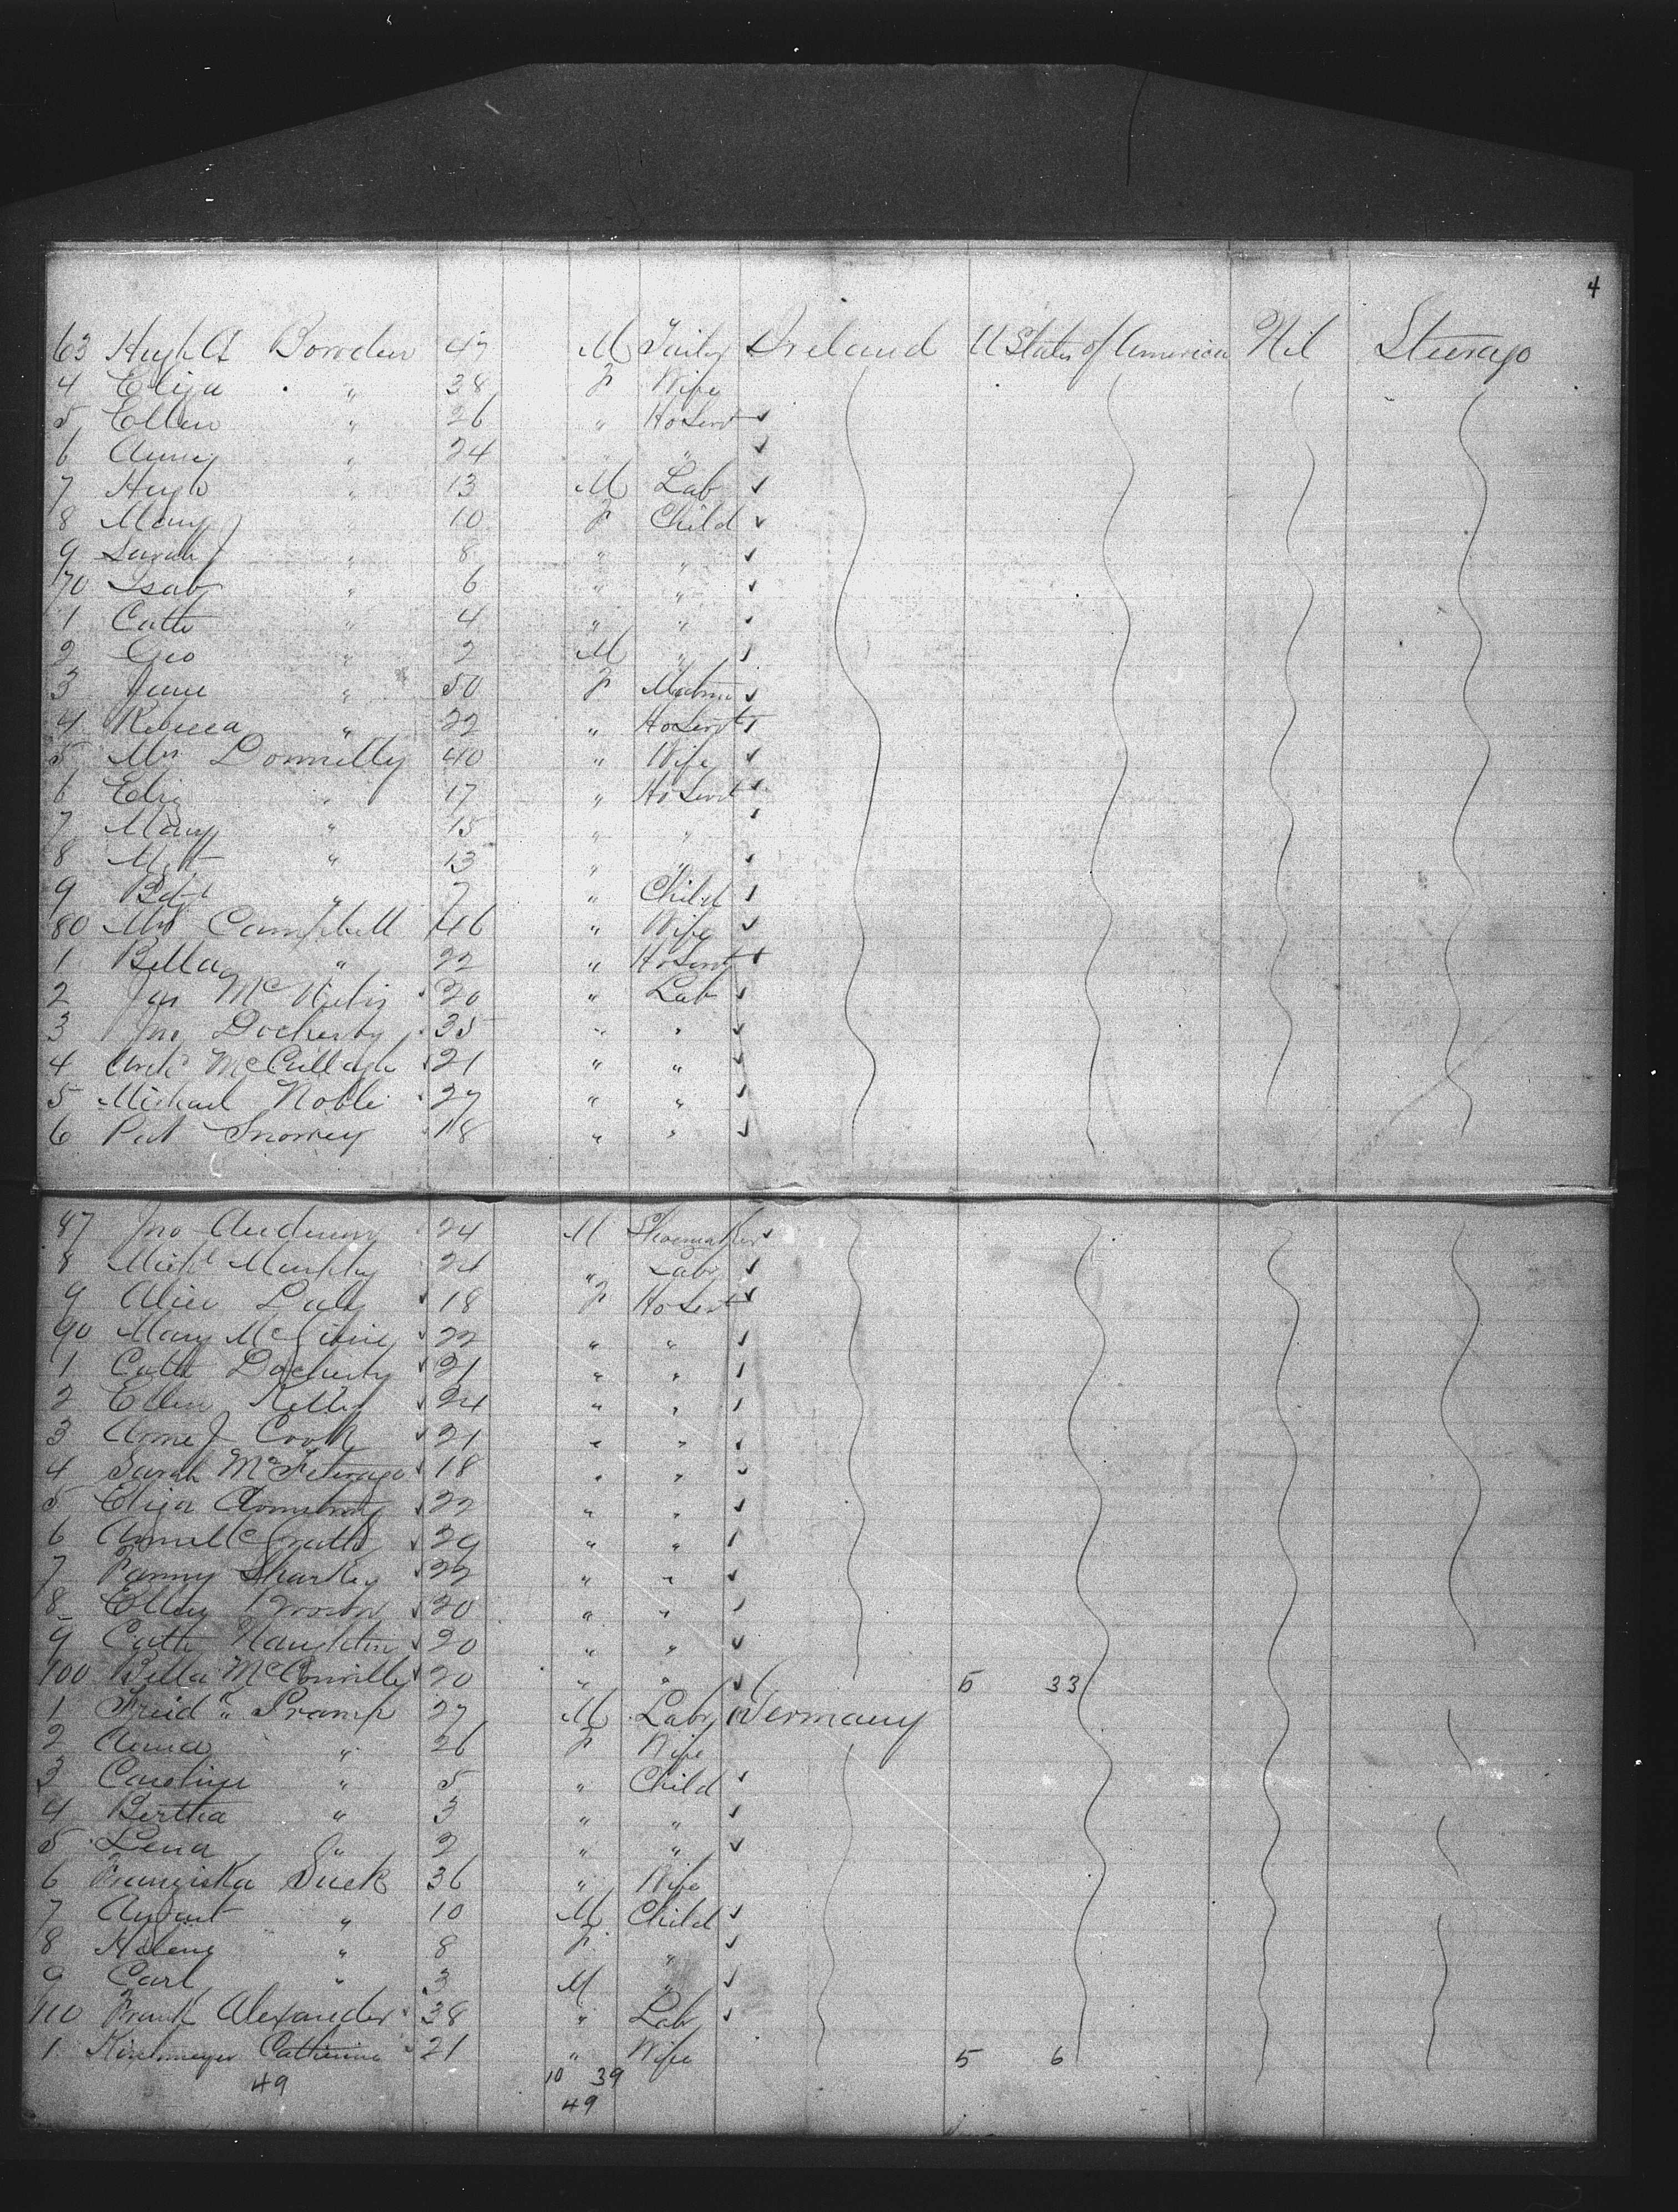 4
63 Hugh A Borrdew 47 M Tailor Ireland U States of America Nil Steerage
4 Eliza " 38 F Wife
5 Ellen " 26 " HoServt
6 Annie " 24 " "
7 Hugh " 13 M Lab
8 Mary J " 10 F Child
9 Sarah J " 8 " "
70 Isab " 6 " "
1 Cath " 4 " "
2 Geo " 2 M "
3 Jane " 50 F Matron
4 Rebecca " 22 " HoServt
5 Mrs Donnelly 40 " Wife
6 Eliz " 17 " HoServt
7 Mary " 15 " "
8 " 13 " "
9 " 7 " Child
80 Mrs Campbell 46 " Wife
1 Bella " 22 " HoServt
2 Jas 20 " Lab
3 Jno Docherty 35 " "
4 Arch McCullagh 21 " "
5 Michael Noble 27 " "
6 Pat 18 " "
87 Jno 24 M Shoemaker
8 Michl Murphy 24 " Labr
9 Alice Daly 18 F HoServt
90 Mary 22 " "
1 Cath Docherty 21 " "
2 Ellen Kelly 24 " "
3 Anne J Cook 21 " "
4 Sarah McFetrage 18 " "
5 Eliza Armstrong 22 " "
6 Anne McGrath 29 " "
7 Fanny Sharkey 22 " "
8 Ellen Brown 20 " "
9 Cath Naughton 20 " "
100 Bella McConville 20 " " 5 33
1 Fried " Pramp 27 M Labr Germany
2 Anna " 26 F Wife
3 Caroline " 5 " Child
4 Bertha " 3 " "
5 Lena " 2 " "
6 Franziska Suck 36 " Wife
7 August " 10 M Child
8 Helene " 8 F "
9 Carl " 3 M "
110 Frank Alexander 38 " Lab
1 Kirshmeyer Catherine 21 " Wife 5 6
49 10 39
49